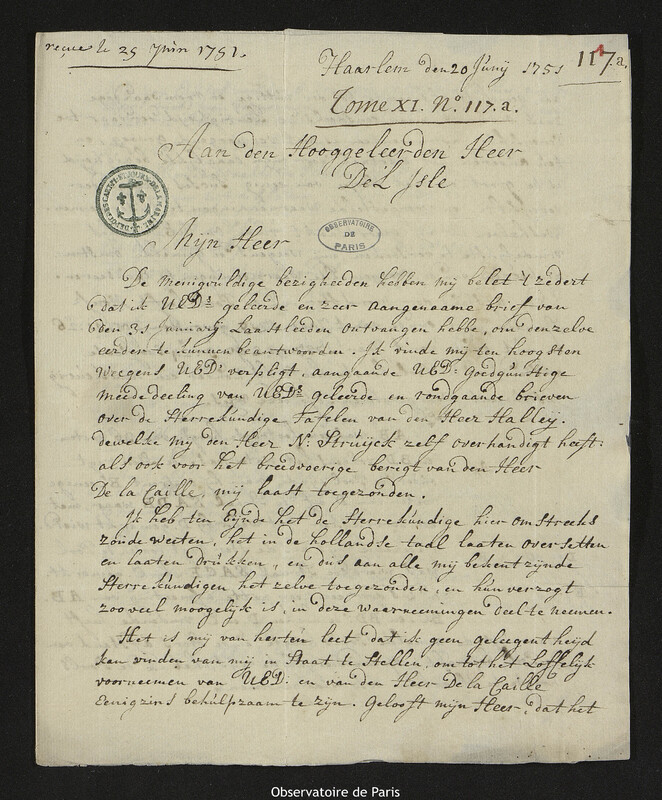 reçue le 25 Juin 1751.
Haarlem den 20 Junij 1751
117.a.
Tome XI. No. 117.a.
Aan den Hooggeleerden Heer
De L'Isle
OBSERVATOIRE
DE
PARIS
Mijn Heer
De menigvuldige bezigheeden hebben mij belet 't zedert
dat ik UEDs geleerde en zeer aangenaame brief van
den 31 Januarij Laastleeden ontvangen hebbe, om denzelve
eerder te kunnen beantwoorden. Ik vinde mij ten hoogsten
weegens UEDs verpligt, aangaande UEDs Goedgunstige
meededeeling van UEDs geleerde en rondgaande brieven
over de Sterrekundige Tafelen van den Heer Halley.
dewelke mij den Heer N. Struijck zelf overhandigt heeft.
als ook voor het breedvoerige berigt van den Heer
De la Caille, mij laast toegezonden.
Ik heb ten Eijnde het de Sterrekundige hier omstreeks
zoude weeten, het in de hollandse taal laaten oversetten
en laaten drukken, en dus aan alle mij bekent zijnde
Sterrekundigen het zelve toegezonden, en hun verzogt
zooveel moogelijk is, in deze waarneemingen deel te neemen.
Het is mij van harten leet dat ik geen geleegentheijd
kan vinden van mij in Staat te Stellen, om tot het Loffelijk
voorneemen van UED. en van den Heer De la Caille
Eenigzins behulpzaam te zijn. Gelooft mijn Heer, dat het
Observatoire de Paris